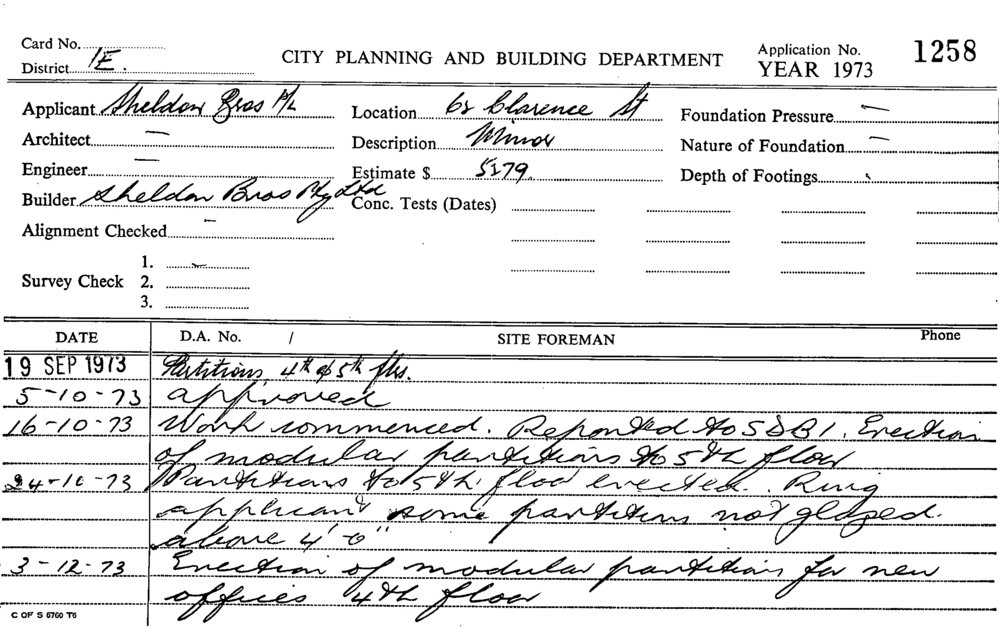 Card No.
District 1E.
CITY PLANNING AND BUILDING DEPARTMENT
Application No. 1258
YEAR 1973
Applicant Sheldon Bros P/L
Location 68 Clarence St
Foundation Pressure —
Architect —
Description Minor
Nature of Foundation —
Engineer —
Estimate $ 5179.
Depth of Footings
Builder Sheldon Bros Pty Ltd
Conc. Tests (Dates)
Alignment Checked –
Survey Check
1.
2.
3.
DATE D.A. No. / SITE FOREMAN Phone
19 SEP 1973 Partitions, 4th & 5th flrs.
5-10-73 approved
16-10-73 Work commenced. Reported to SDB1. Erection
of modular partitions to 5th floor
24-10-73 Partitions to 5th floor erected. Ring
applicant some partitions not glazed.
above 4'-0"
3-12-73 Erection of modular partitions for new
offices 4th floor
C OF S 6760 T6